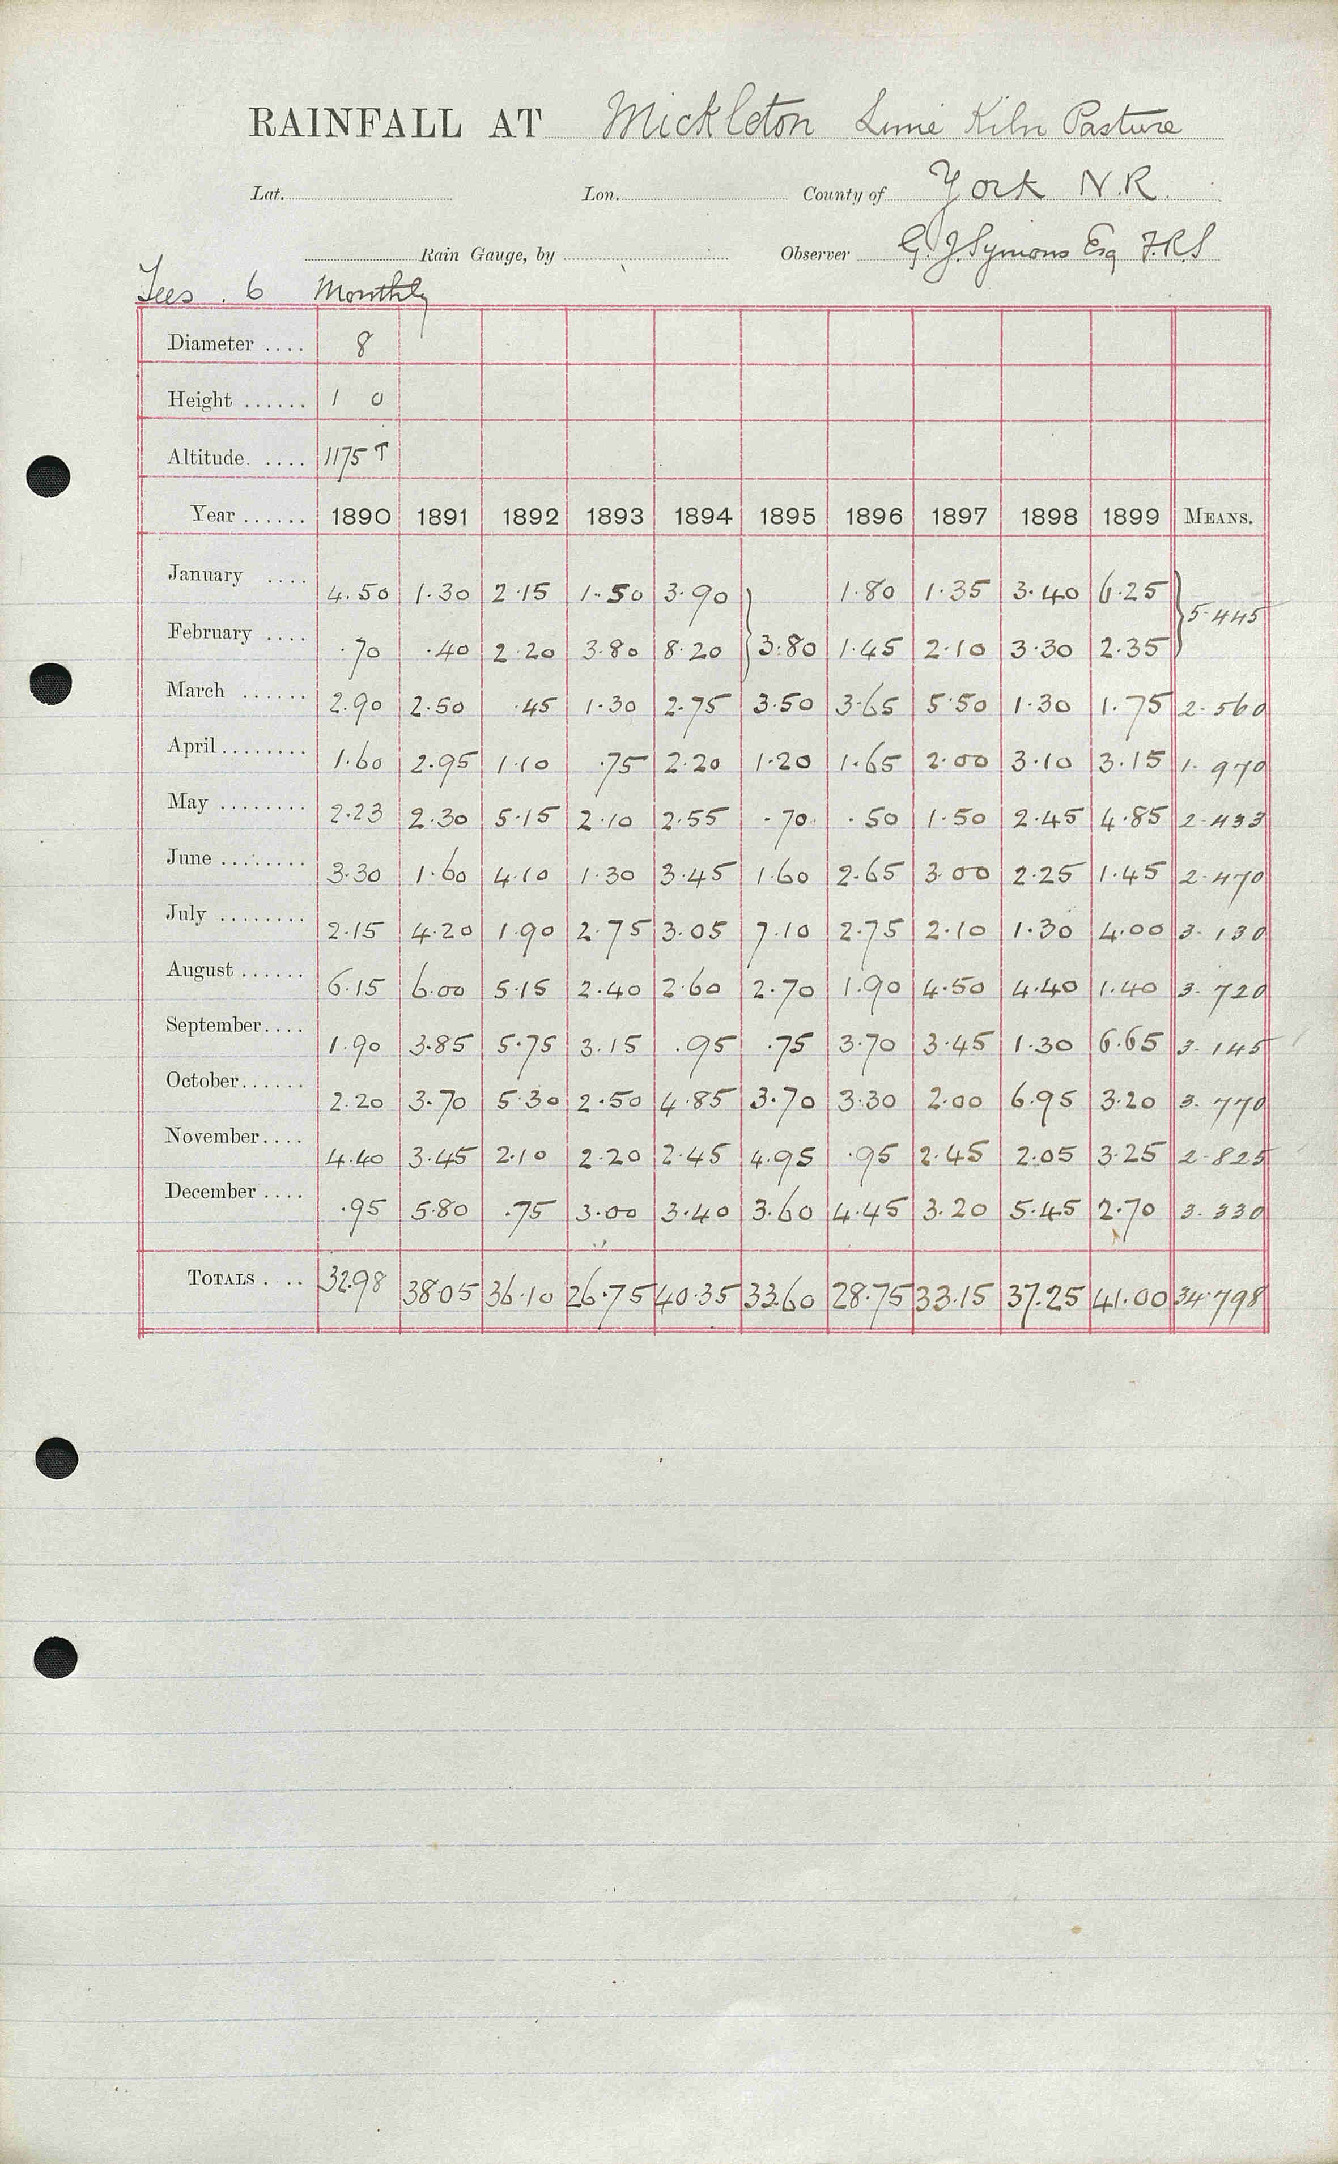 RAINFALL AT Mickleton Lime Kiln Pasture
Lat. Lon. County of York N.R.
Rain Gauge, by Observer G. J. Symons Esq F.R.S
Tees . 6 Monthly
Diameter .... 8
Height ...... 1 0
Altitude. .... 1175 T
Year ...... 1890 1891 1892 1893 1894 1895 1896 1897 1898 1899 MEANS.
January .... 4.50 1.30 2.15 1.50 3.90 } 1.80 1.35 3.40 6.25 } 5.445
February .... .70 .40 2.20 3.80 8.20 3.80 1.45 2.10 3.30 2.35
March ...... 2.90 2.50 .45 1.30 2.75 3.50 3.65 5.50 1.30 1.75 2.560
April ........ 1.60 2.95 1.10 .75 2.20 1.20 1.65 2.00 3.10 3.15 1.970
May ........ 2.23 2.30 5.15 2.10 2.55 .70 .50 1.50 2.45 4.85 2.433
June ........ 3.30 1.60 4.10 1.30 3.45 1.60 2.65 3.00 2.25 1.45 2.470
July ........ 2.15 4.20 1.90 2.75 3.05 7.10 2.75 2.10 1.30 4.00 3.130
August ...... 6.15 6.00 5.15 2.40 2.60 2.70 1.90 4.50 4.40 1.40 3.720
September.... 1.90 3.85 5.75 3.15 .95 .75 3.70 3.45 1.30 6.65 3.145
October...... 2.20 3.70 5.30 2.50 4.85 3.70 3.30 2.00 6.95 3.20 3.770
November.... 4.40 3.45 2.10 2.20 2.45 4.95 .95 2.45 2.05 3.25 2.825
December .... .95 5.80 .75 3.00 3.40 3.60 4.45 3.20 5.45 2.70 3.330
TOTALS . .. 32.98 38.05 36.10 26.75 40.35 33.60 28.75 33.15 37.25 41.00 34.798